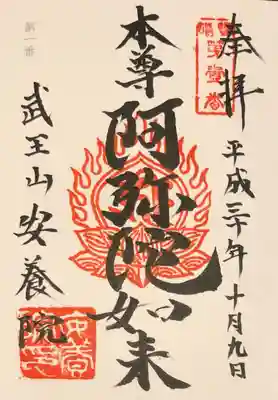 奉拝
平成三十年十月九日
本尊阿弥陀如来
武王山安養院
第一番